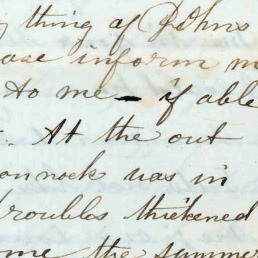 thing of Johns
inform m
to me - if able
At the out
nock was in
troubles thickened
me the summer